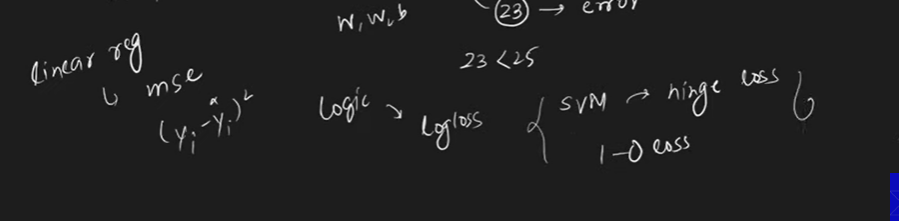 w, w₂ b
23 → error
23 < 25
linear reg
↳ mse
(yᵢ - ŷᵢ)²
logic → logloss
{ SVM → hinge loss }
1-0 loss